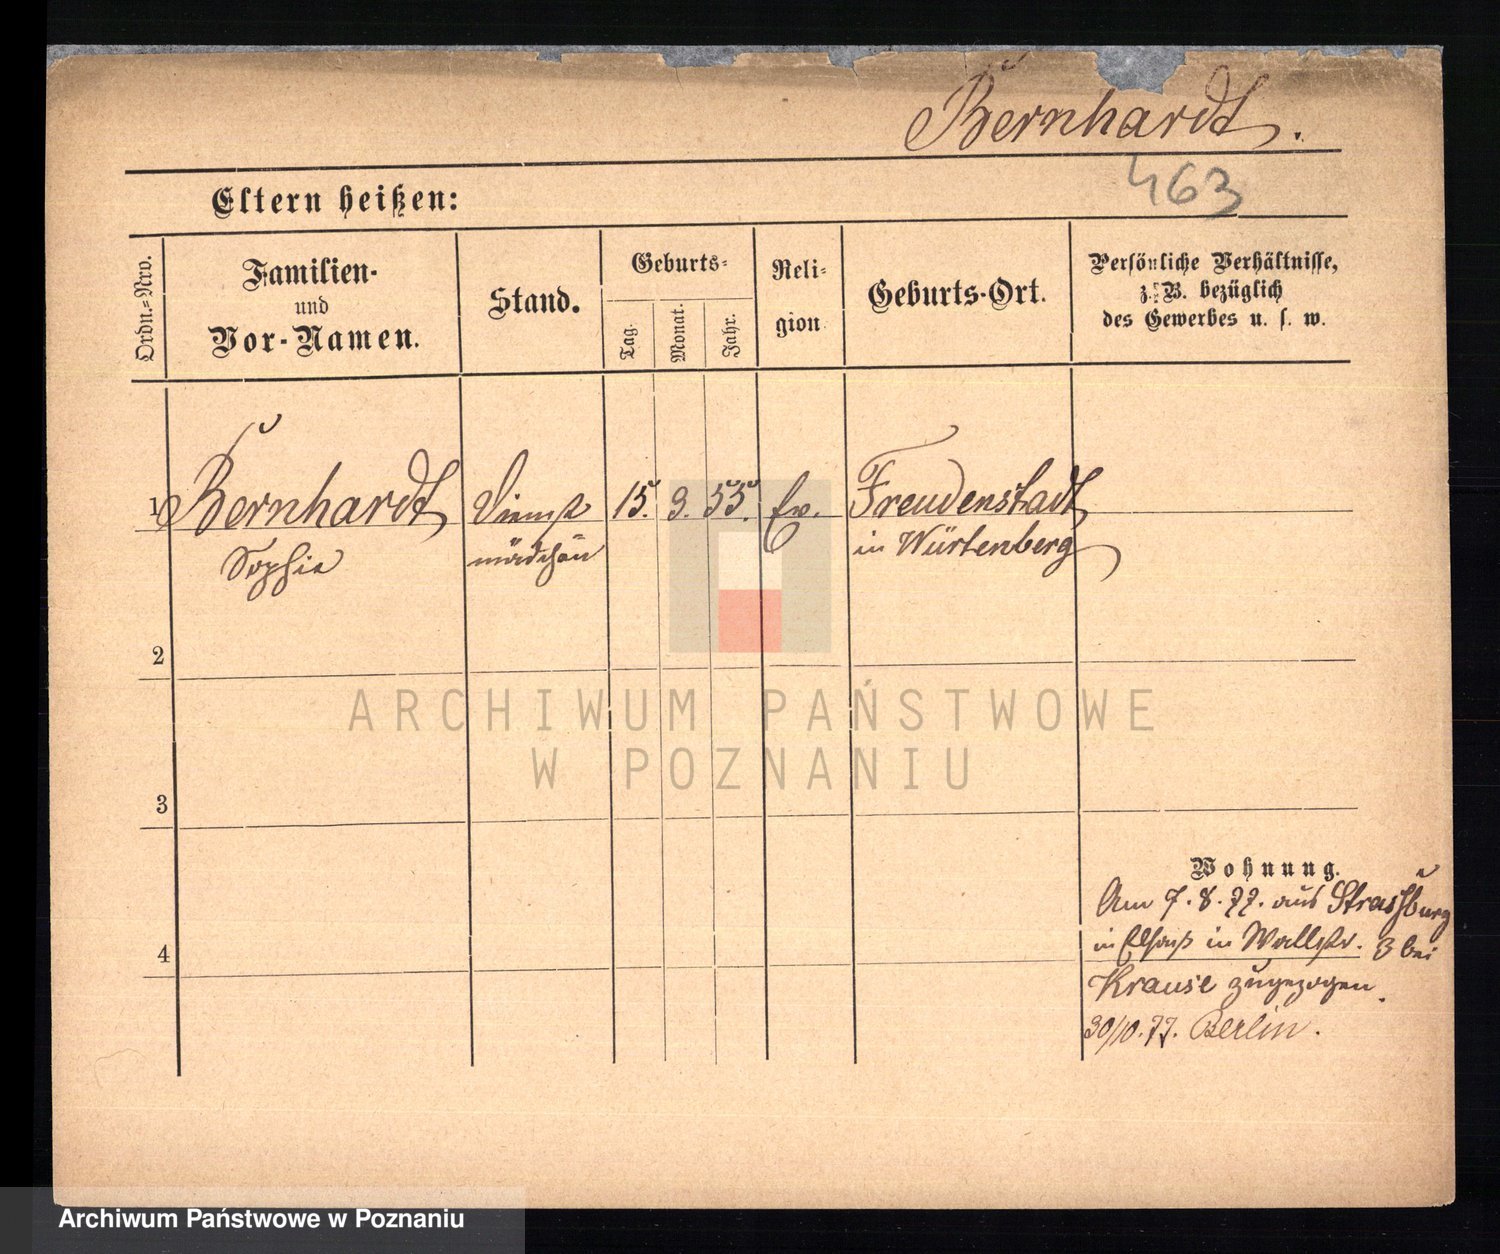 Bernhardt.
463
Eltern heißen:
Ordn.-Nro.
Familien-
und
Vor-Namen.
Stand.
Geburts-
Tag.
Monat.
Jahr.
Reli-
gion
Geburts-Ort.
Persönliche Verhältnisse,
z. B. bezüglich
des Gewerbes u. s. w.
1 Bernhardt Dienst 15. 9. 55. Ev. Freudenstadt
Sophie mädchen in Würtenberg
2
3
4
Wohnung.
Am 7. 8. 77. aus Strassburg
in Elsaß in Wallstr. 3 bei
Krause zugezogen.
30/10. 77. Berlin.
ARCHIWUM PAŃSTWOWE
W POZNANIU
Archiwum Państwowe w Poznaniu